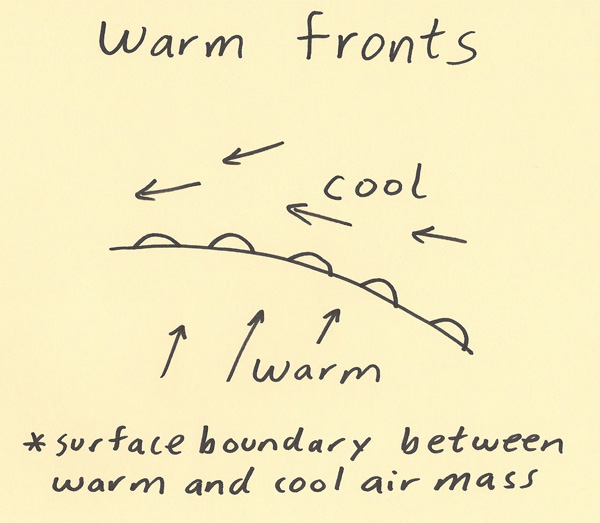 Warm fronts
cool
warm
*surface boundary between
warm and cool air mass